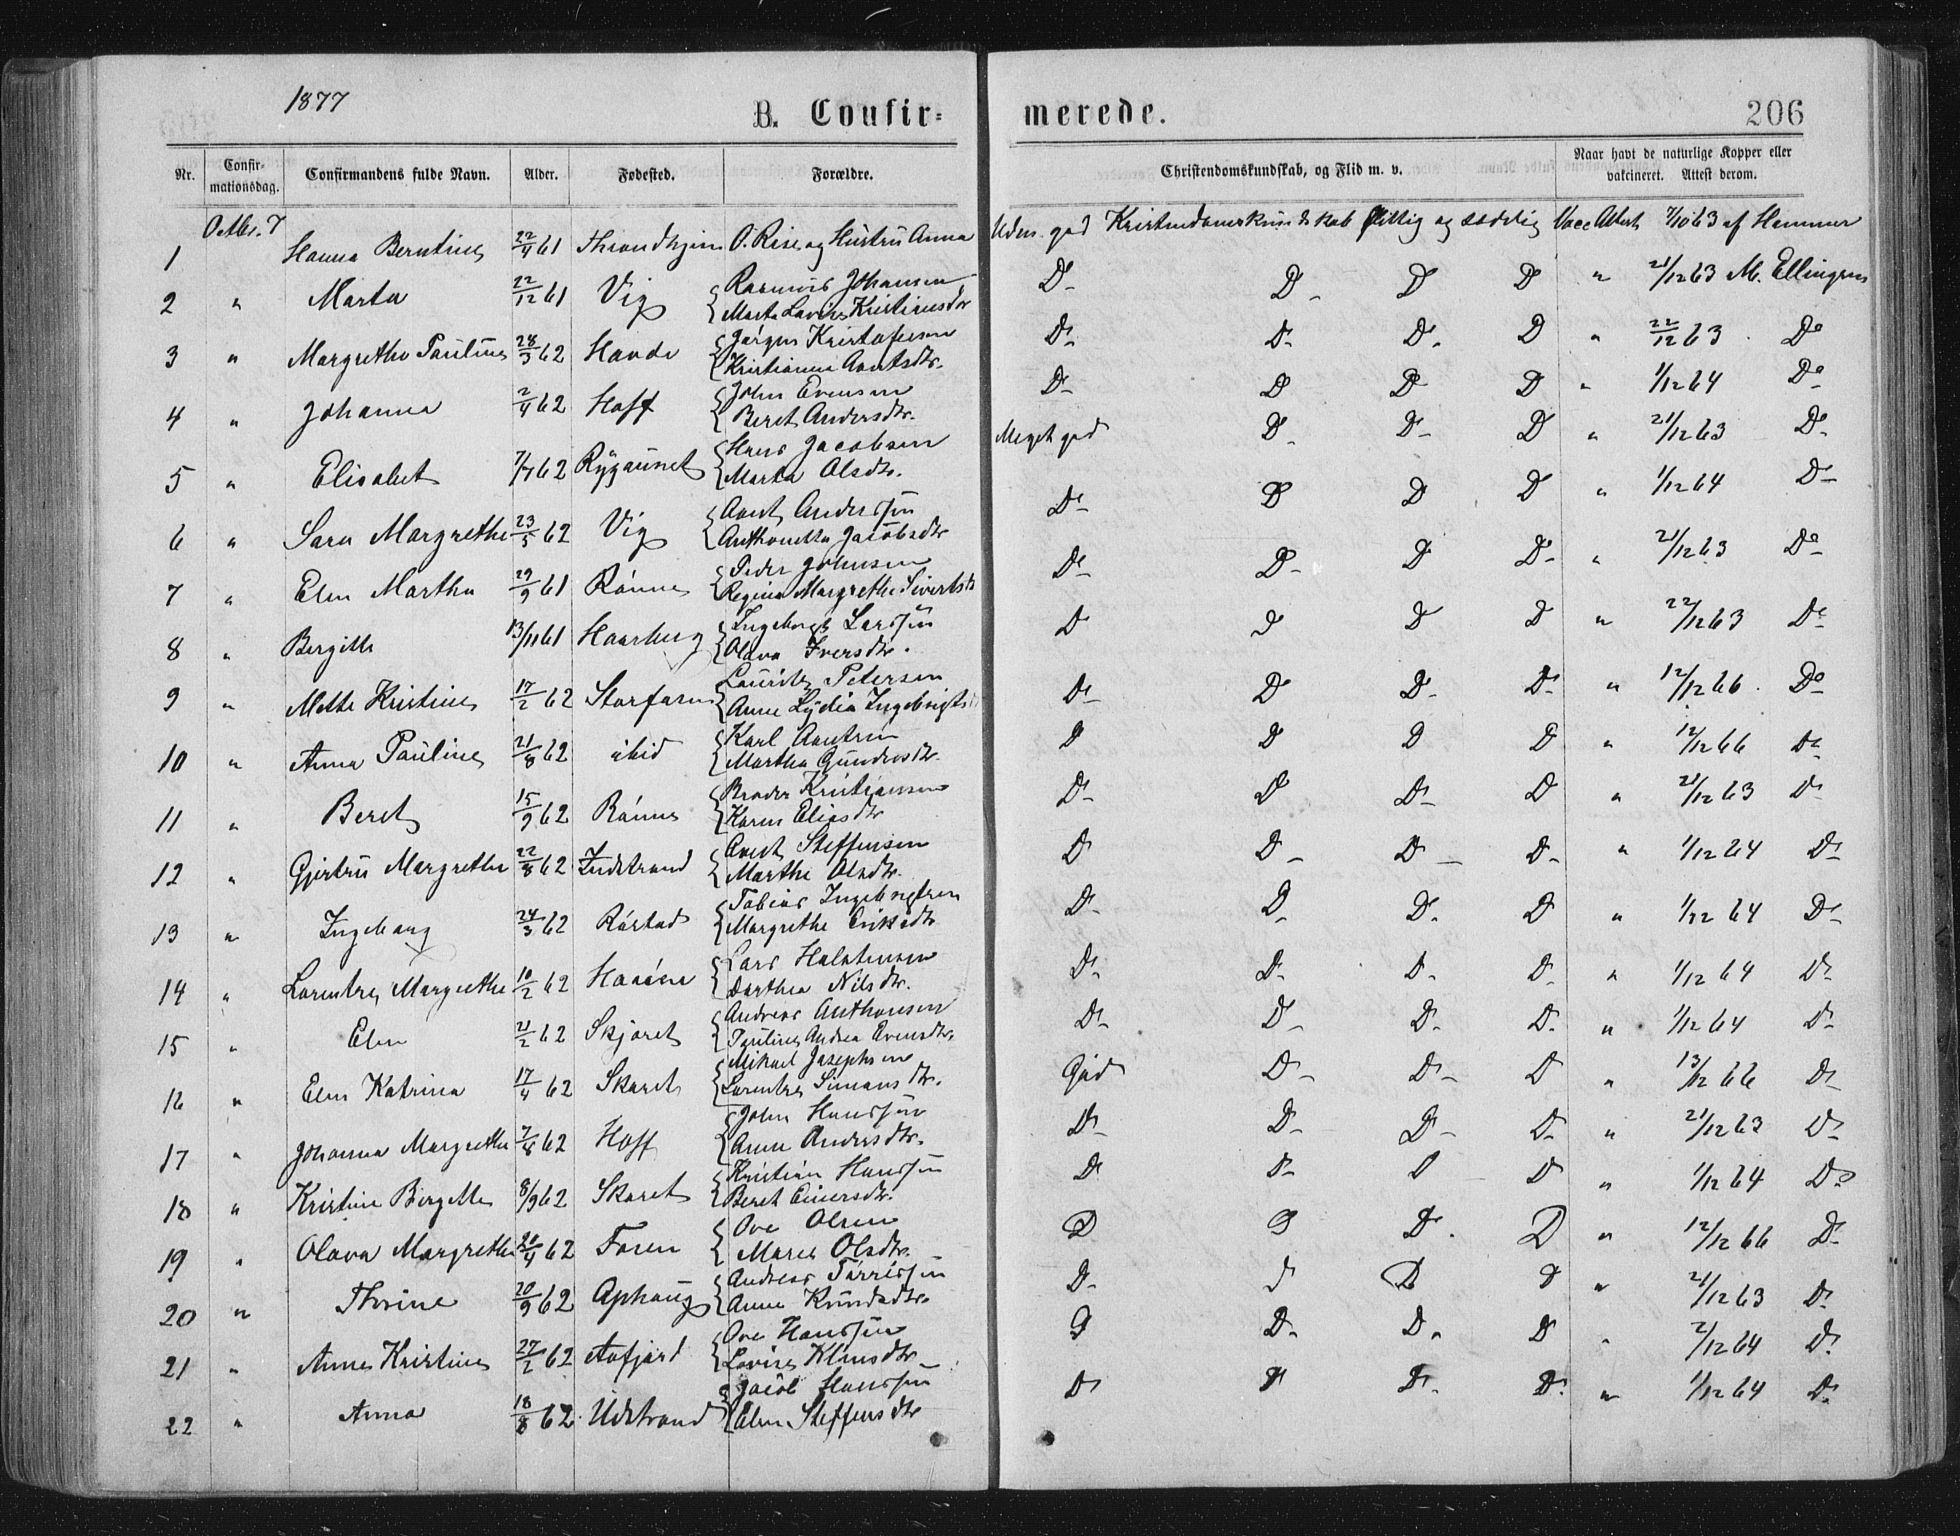 1877
B. Confir-
merede.
206
Nr.
Confir-
mationsdag.
Confirmandens fulde Navn.
Alder.
Fødested.
Forældre.
Christendomskundskab, og Flid m. v.
Naar havt de naturlige Kopper eller
vakcineret. Attest derom.
1 Octbr. 7 Hanna Berntine 22/4 61 Throndhjem O. Rise og Hustru Anna Udm. god Kristendomskundskab flittig og sædelig Vacc Attest 7/10 63 af Hammer
2 " Marta 22/12 61 Vig Rasmus Johansen
Marta Lovise Kristiansdtr D- D- D D " 21/12 63 M. Ellingsen
3 " Margrethe Pauline 28/3 62 Hovde Jørgen Kristofersen
Kristianna Arntsdtr. D- D- D- D " 22/12 63 D-
4 " Johanna 2/4 62 Hoff John Evensen
Beret Andersdtr. D- D D D " 1/12 64 D-
5 " Elisabet 7/7 62 Rygaunet Hans Jacobsen
Marta Olsdtr. Meget god D- D- D " 21/12 63 D-
6 " Sara Margrethe 23/5 62 Vig Arent Anderssøn
Anthonetta Jacobsdtr D- D D D " 1/12 64 D-
7 " Elen Martha 29/9 61 Rønne Peder Johnsen
Regina Margrethe Sivertsdtr D- D- D D- " 21/12 63 D-
8 " Bergitte 13/11 61 Haarberg Ingeborgt Larssøn
Olava Iversdtr. D D D D " 22/12 63 D-
9 " Mette Kristine 17/2 62 Storfosen Lauritz Petersen
Anne Lydia Ingebrigts D- D D- D- " 12/12 66 D-
10 " Anna Pauline 21/8 62 ibid Karl Arntsen
Martha Gundersdtr. D D D D " 12/12 66 D-
11 " Beret 15/9 62 Rønne Broder Kristiansen
Karen Eliasdtr D- D D- D " 21/12 63 D-
12 " Gjertru Margrethe 22/8 62 Indstrand Arent Steffensen
Marthe Olsdtr. D D- D- D- " 1/12 24 D-
13 " Ingeborg 24/3 62 Røstad Tobias Ingebrigtsen
Margrethe Eriksdtr D- D- D- D " 1/12 64 D-
14 " Lorentze Margrethe 10/2 62 Lars Halstensen
Dorthea Nilsdtr. D- D- D- D- " 1/12 64 D-
15 " Elen 21/2 62 Skjøret Andreas Anthonsen
Pauline Andrea Evensdtr. D- D- D- D- " 1/12 64 D-
16 " Elen Katrina 17/4 62 Skaret Mikael Josephsen
Lorentze Simonsdtr. God D- D- D " 13/12 66 D-
17 " Johanna Margrethe 7/8 62 Hoff John Hanssøn
Anne Andersdtr. D- D- D- D- " 21/12 63 D-
18 " Kristine Birgitte 8/9 62 Skaret Kristian Hanssøn
Beret Einersdtr. D D- D D " 1/12 64 D-
19 " Olava Margrethe 20/4 62 Foren Ove Olsen
Maren Olsdtr. D D D- D " 12/12 66 D-
20 " Thorine 20/9 62 Aphaug Andreas Tørrissøn
Anne Knudsdtr. D- D D D " 21/12 63 D-
21 " Anne Kristine 27/2 62 Aafjord Ove Hanssøn
Lovise Klausdtr D D- D- D " 2/12 64 D-
22 " Anna 18/8 62 Udstrand Jacob Hanssøn
Elen Steffensdtr D D D- D- " 1/12 64 D-